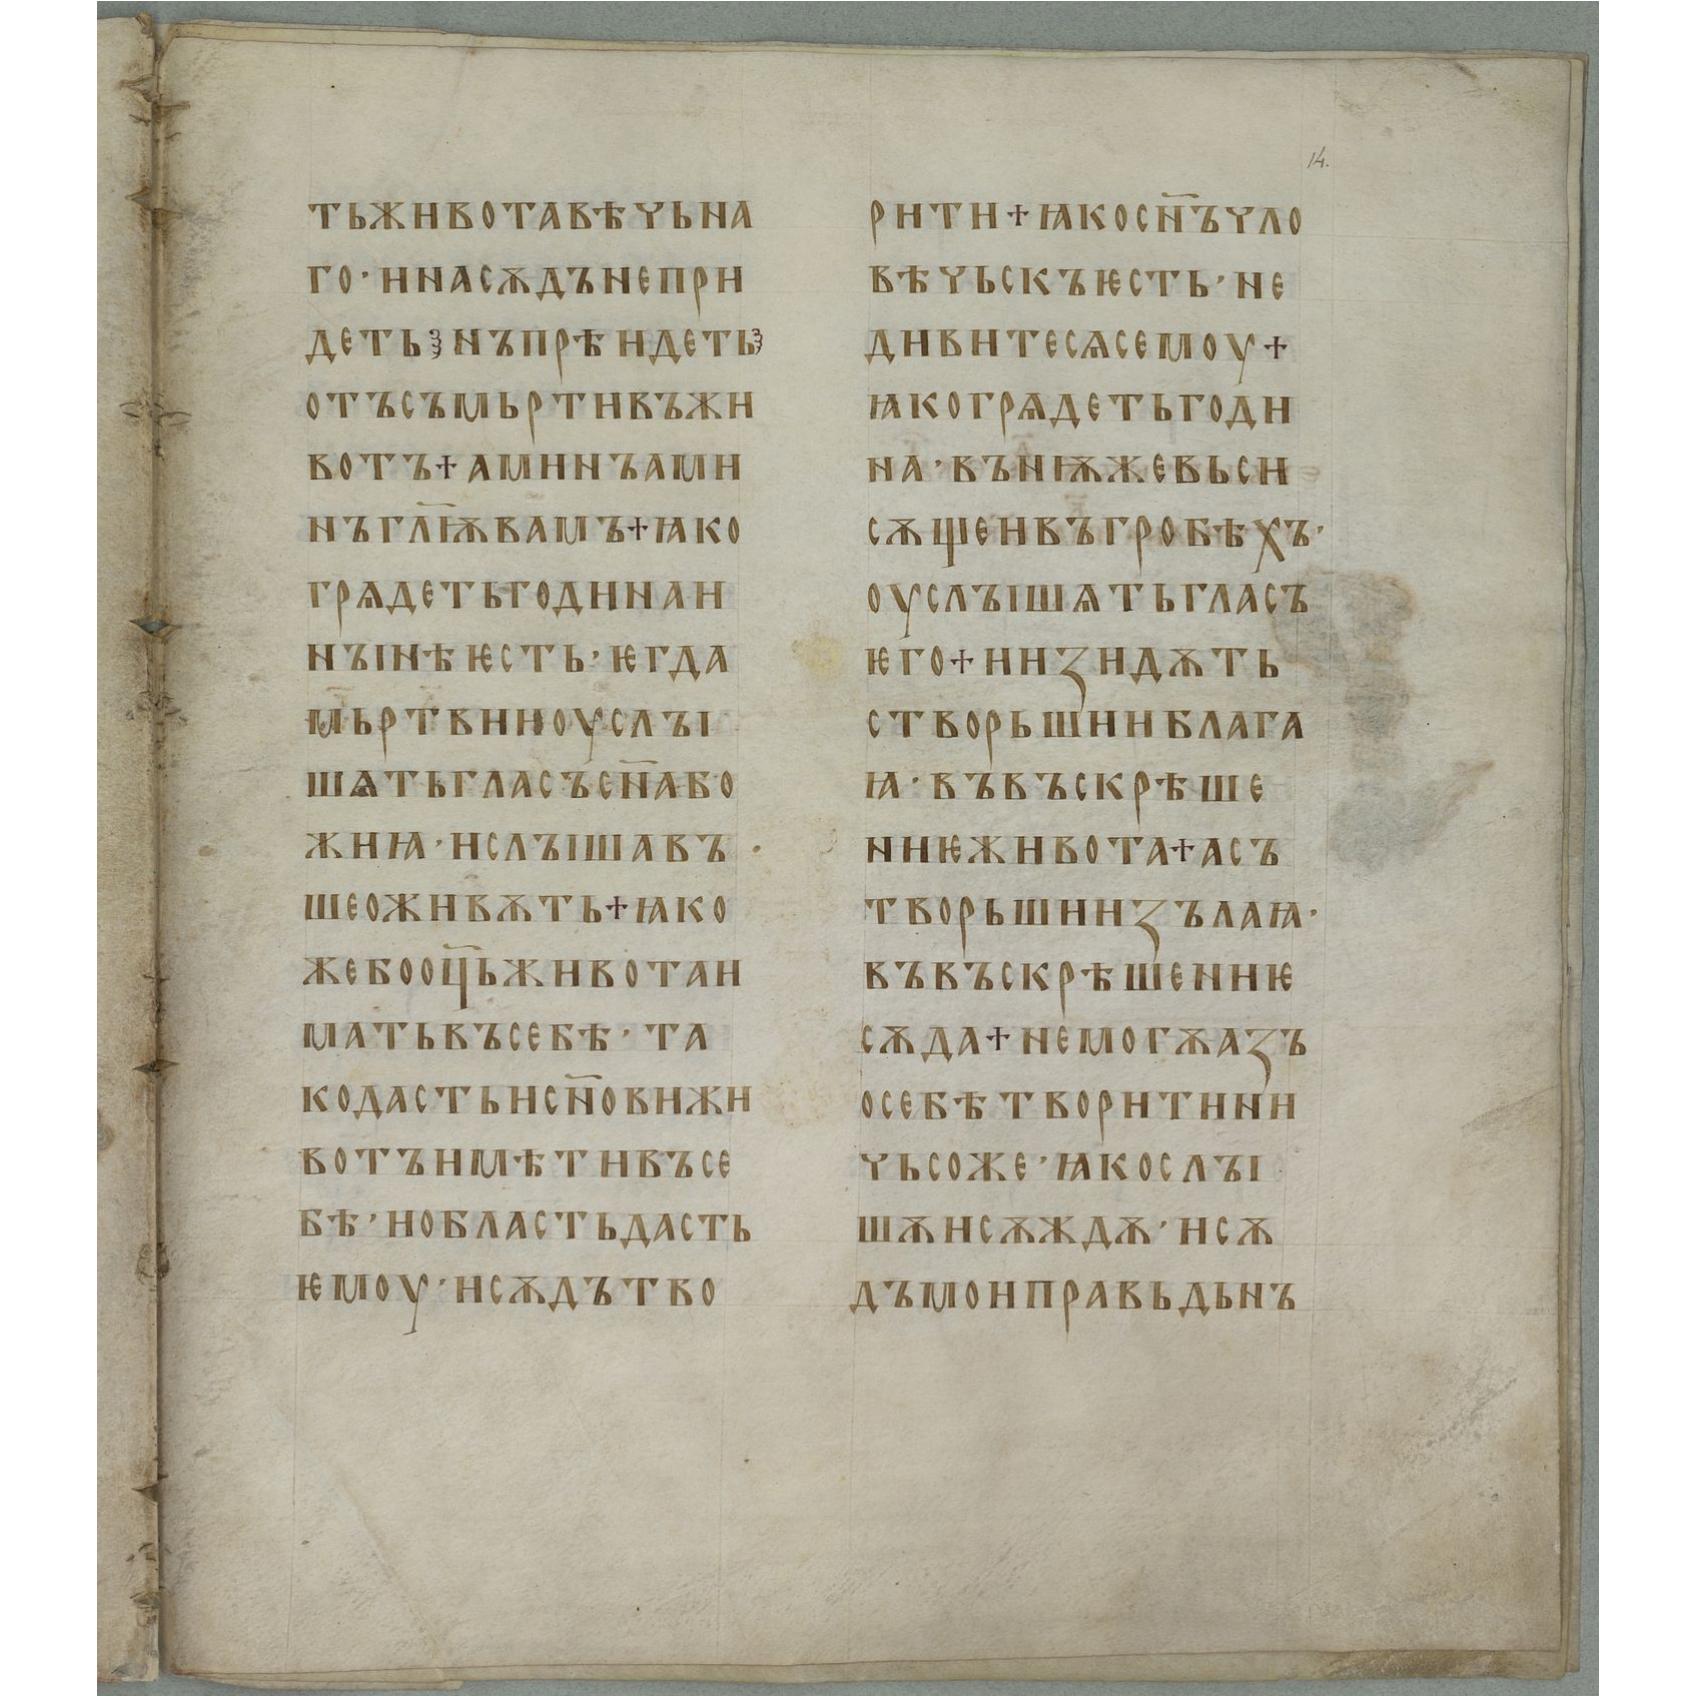 14.
тьживотавѣчьна
го·инасѫдънепри
деть⁘нъпрѣидеть⁘
отъсъмьртивъжи
вотъ+аминъами
нъгл҃ѭвамъ+ꙗко
грѧдетьгодинаи
нꙑнѣѥсть·ѥгда
мьртвииоуслꙑ
шѧтьгласъсн҃або
жиꙗ·ислꙑшавъ
шеоживѫть+ꙗко
жебооц҃ьживотаи
матьвъсебѣ·та
кодастьисн҃овижи
вотъимѣтивъсе
бѣ·иобластьдасть
ѥмоу·исѫдътво
рити+ꙗкосн҃ъчло
вѣчьскъѥсть·не
дивитесѧсемоу+
ꙗкогрѧдетьгоди
на·въниѫжевьси
сѫщеивъгробѣхъ·
оуслꙑшѧтьгласъ
ѥго+иизидѫть
створьшииблага
ꙗ·въвъскрѣше
ниѥживота+асъ
творьшиизълаꙗ·
въвъскрѣшениѥ
сѫда+немогѫазъ
осебѣтворитини
чьсоже·ꙗкослꙑ
шѫисѫждѫ·исѫ
дъмоиправьдьнъ